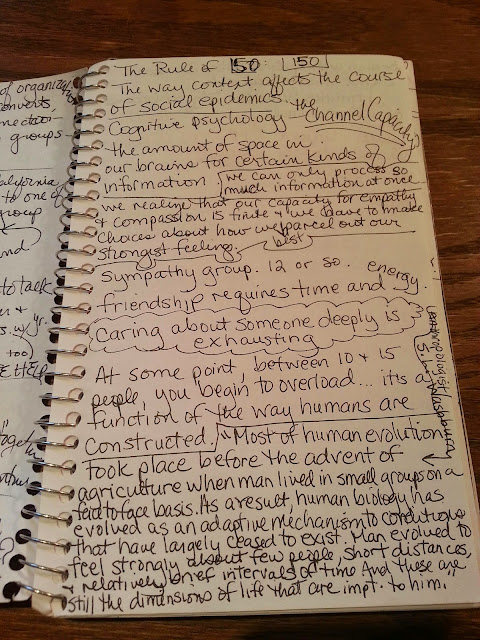 of organiza
converts,
groups
California
to one of
group
and
to talk
too
The Rule of 150: 150
The way context affects the course
of social epidemics.
Cognitive psychology — the Channel Capacity
the amount of space in
our brains for certain kinds of
information we can only process so
much information at once
we realize that our capacity for empathy
& compassion is finite & we have to make
choices about how we best parcel out our
strongest feelings.
Sympathy group. 12 or so. energy.
friendship requires time and
Caring about someone deeply is
exhausting
At some point, between 10 & 15
people, you begin to overload... it's a
function of the way humans are
constructed. "Most of human evolution
took place before the advent of
agriculture when man lived in small groups on a
face to face basis. As a result, human biology has
evolved as an adaptive mechanism to conditions
that have largely ceased to exist. Man evolved to
feel strongly about few people, short distances,
& relatively brief intervals of time And these are
still the dimensions of life that are impt. to him."
S.L. Washburn